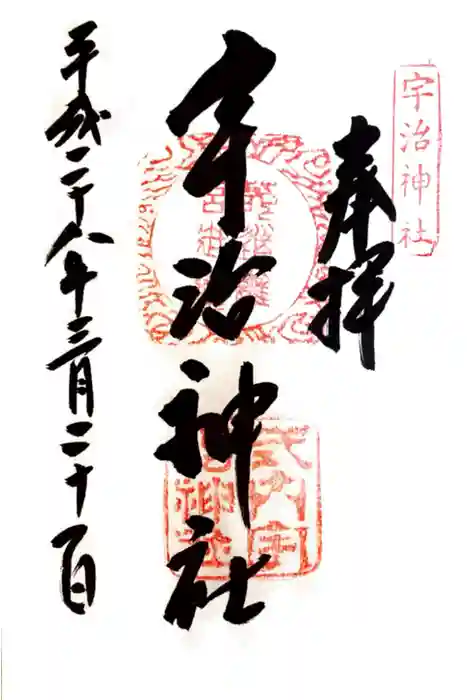 宇治神社
奉拝
宇治神社
平成二十八年三月二十日
式内宇治神社